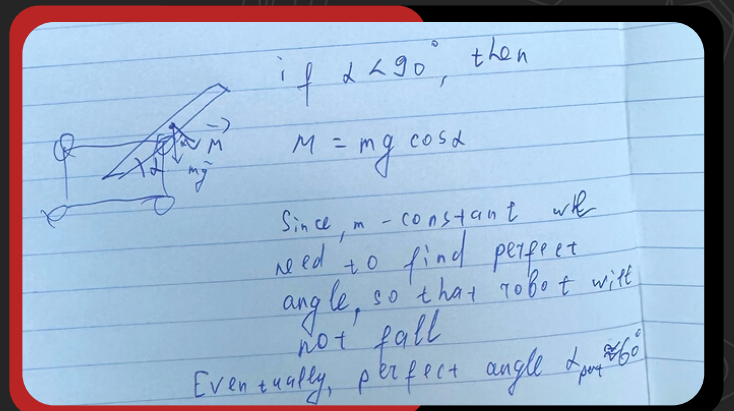 if α < 90°, then
M = mg cosα
Since, m - constant we
need to find perfect
angle, so that robot will
not fall
Eventually, perfect angle α perf ≈ 60°
α
M
mg